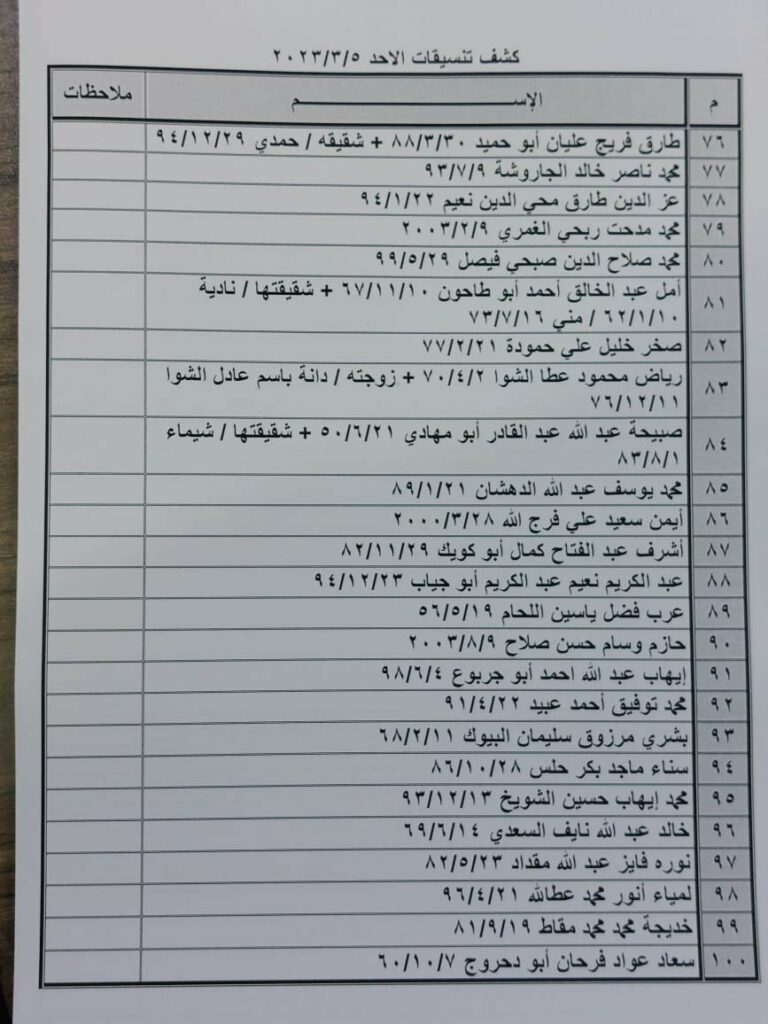 كشف تنسيقات الاحد ٢٠٢٣/٣/٥
م الإســـــم ملاحظات
٧٦ طارق فريج عليان أبو حميد ٨٨/٣/٣٠ + شقيقه / حمدي ٩٤/١٢/٢٩
٧٧ محمد ناصر خالد الجاروشة ٩٣/٧/٩
٧٨ عز الدين طارق محي الدين نعيم ٩٤/١/٢٢
٧٩ محمد مدحت ربحي الغمري ٢٠٠٣/٢/٩
٨٠ محمد صلاح الدين صبحي فيصل ٩٩/٥/٢٩
٨١ أمل عبد الخالق أحمد أبو طاحون ٦٧/١١/١٠ + شقيقتها / نادية
٦٢/١/١٠ / مني ٧٣/٧/١٦
٨٢ صخر خليل علي حمودة ٧٧/٢/٢١
٨٣ رياض محمود عطا الشوا ٧٠/٤/٢ + زوجته / دانة باسم عادل الشوا
٧٦/١٢/١١
٨٤ صبيحة عبد الله عبد القادر أبو مهادي ٥٠/٦/٢١ + شقيقتها / شيماء
٨٣/٨/١
٨٥ محمد يوسف عبد الله الدهشان ٨٩/١/٢١
٨٦ أيمن سعيد علي فرج الله ٢٠٠٠/٣/٢٨
٨٧ أشرف عبد الفتاح كمال أبو كويك ٨٢/١١/٢٩
٨٨ عبد الكريم نعيم عبد الكريم أبو جياب ٩٤/١٢/٢٣
٨٩ عرب فضل ياسين اللحام ٥٦/٥/١٩
٩٠ حازم وسام حسن صلاح ٢٠٠٣/٨/٩
٩١ إيهاب عبد الله احمد أبو جربوع ٩٨/٦/٤
٩٢ محمد توفيق أحمد عبيد ٩١/٤/٢٢
٩٣ بشري مرزوق سليمان البيوك ٦٨/٢/١١
٩٤ سناء ماجد بكر حلس ٨٦/١٠/٢٨
٩٥ محمد إيهاب حسين الشويخ ٩٣/١٢/١٣
٩٦ خالد عبد الله نايف السعدي ٦٩/٦/١٤
٩٧ نوره فايز عبد الله مقداد ٨٢/٥/٢٣
٩٨ لمياء أنور محمد عطالله ٩٦/٤/٢١
٩٩ خديجة محمد محمد مقاط ٨١/٩/١٩
١٠٠ سعاد عواد فرحان أبو دحروج ٦٠/١٠/٧